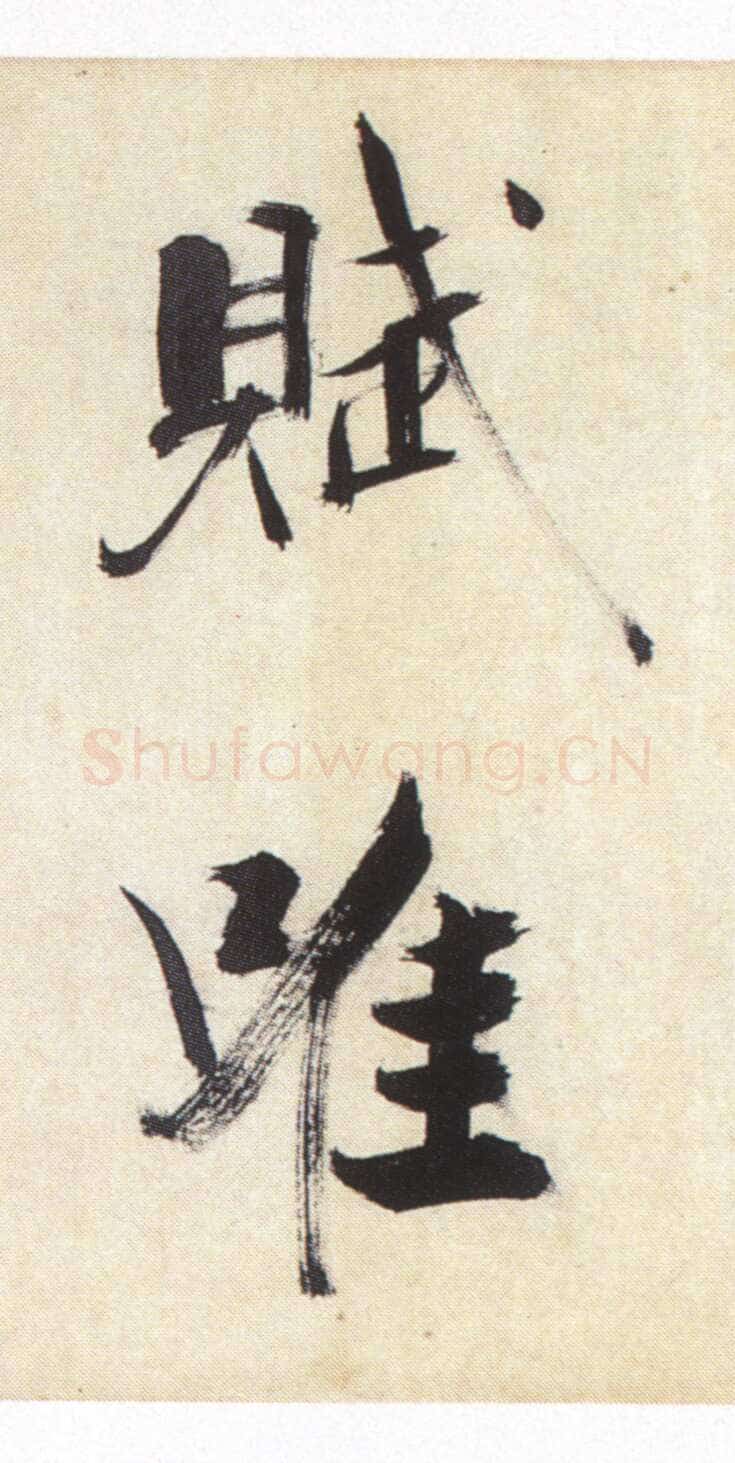 賦唯
Shufawang.CN